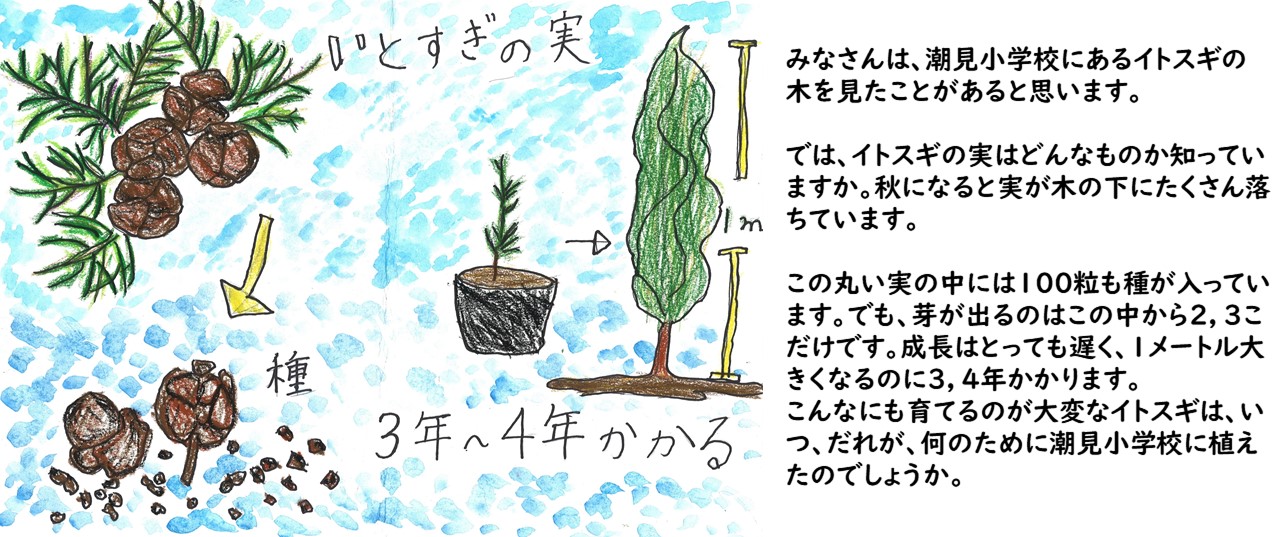 いとすぎの実
1m
種
3年～4年かかる
みなさんは、潮見小学校にあるイトスギの
木を見たことがあると思います。
では、イトスギの実はどんなものか知ってい
ますか。秋になると実が木の下にたくさん落
ちています。
この丸い実の中には100粒も種が入ってい
ます。でも、芽が出るのはこの中から2，3こ
だけです。成長はとっても遅く、1メートル大
きくなるのに3，4年かかります。
こんなにも育てるのが大変なイトスギは、い
つ、だれが、何のために潮見小学校に植え
たのでしょうか。